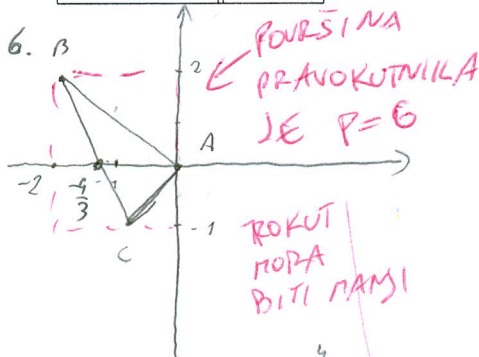 6.
B
2
POVRŠINA
PRAVOKUTNIKA
JE P=6
A
-2
-4/3
-1
-1
C
TROKUT
MORA
BITI MANJI